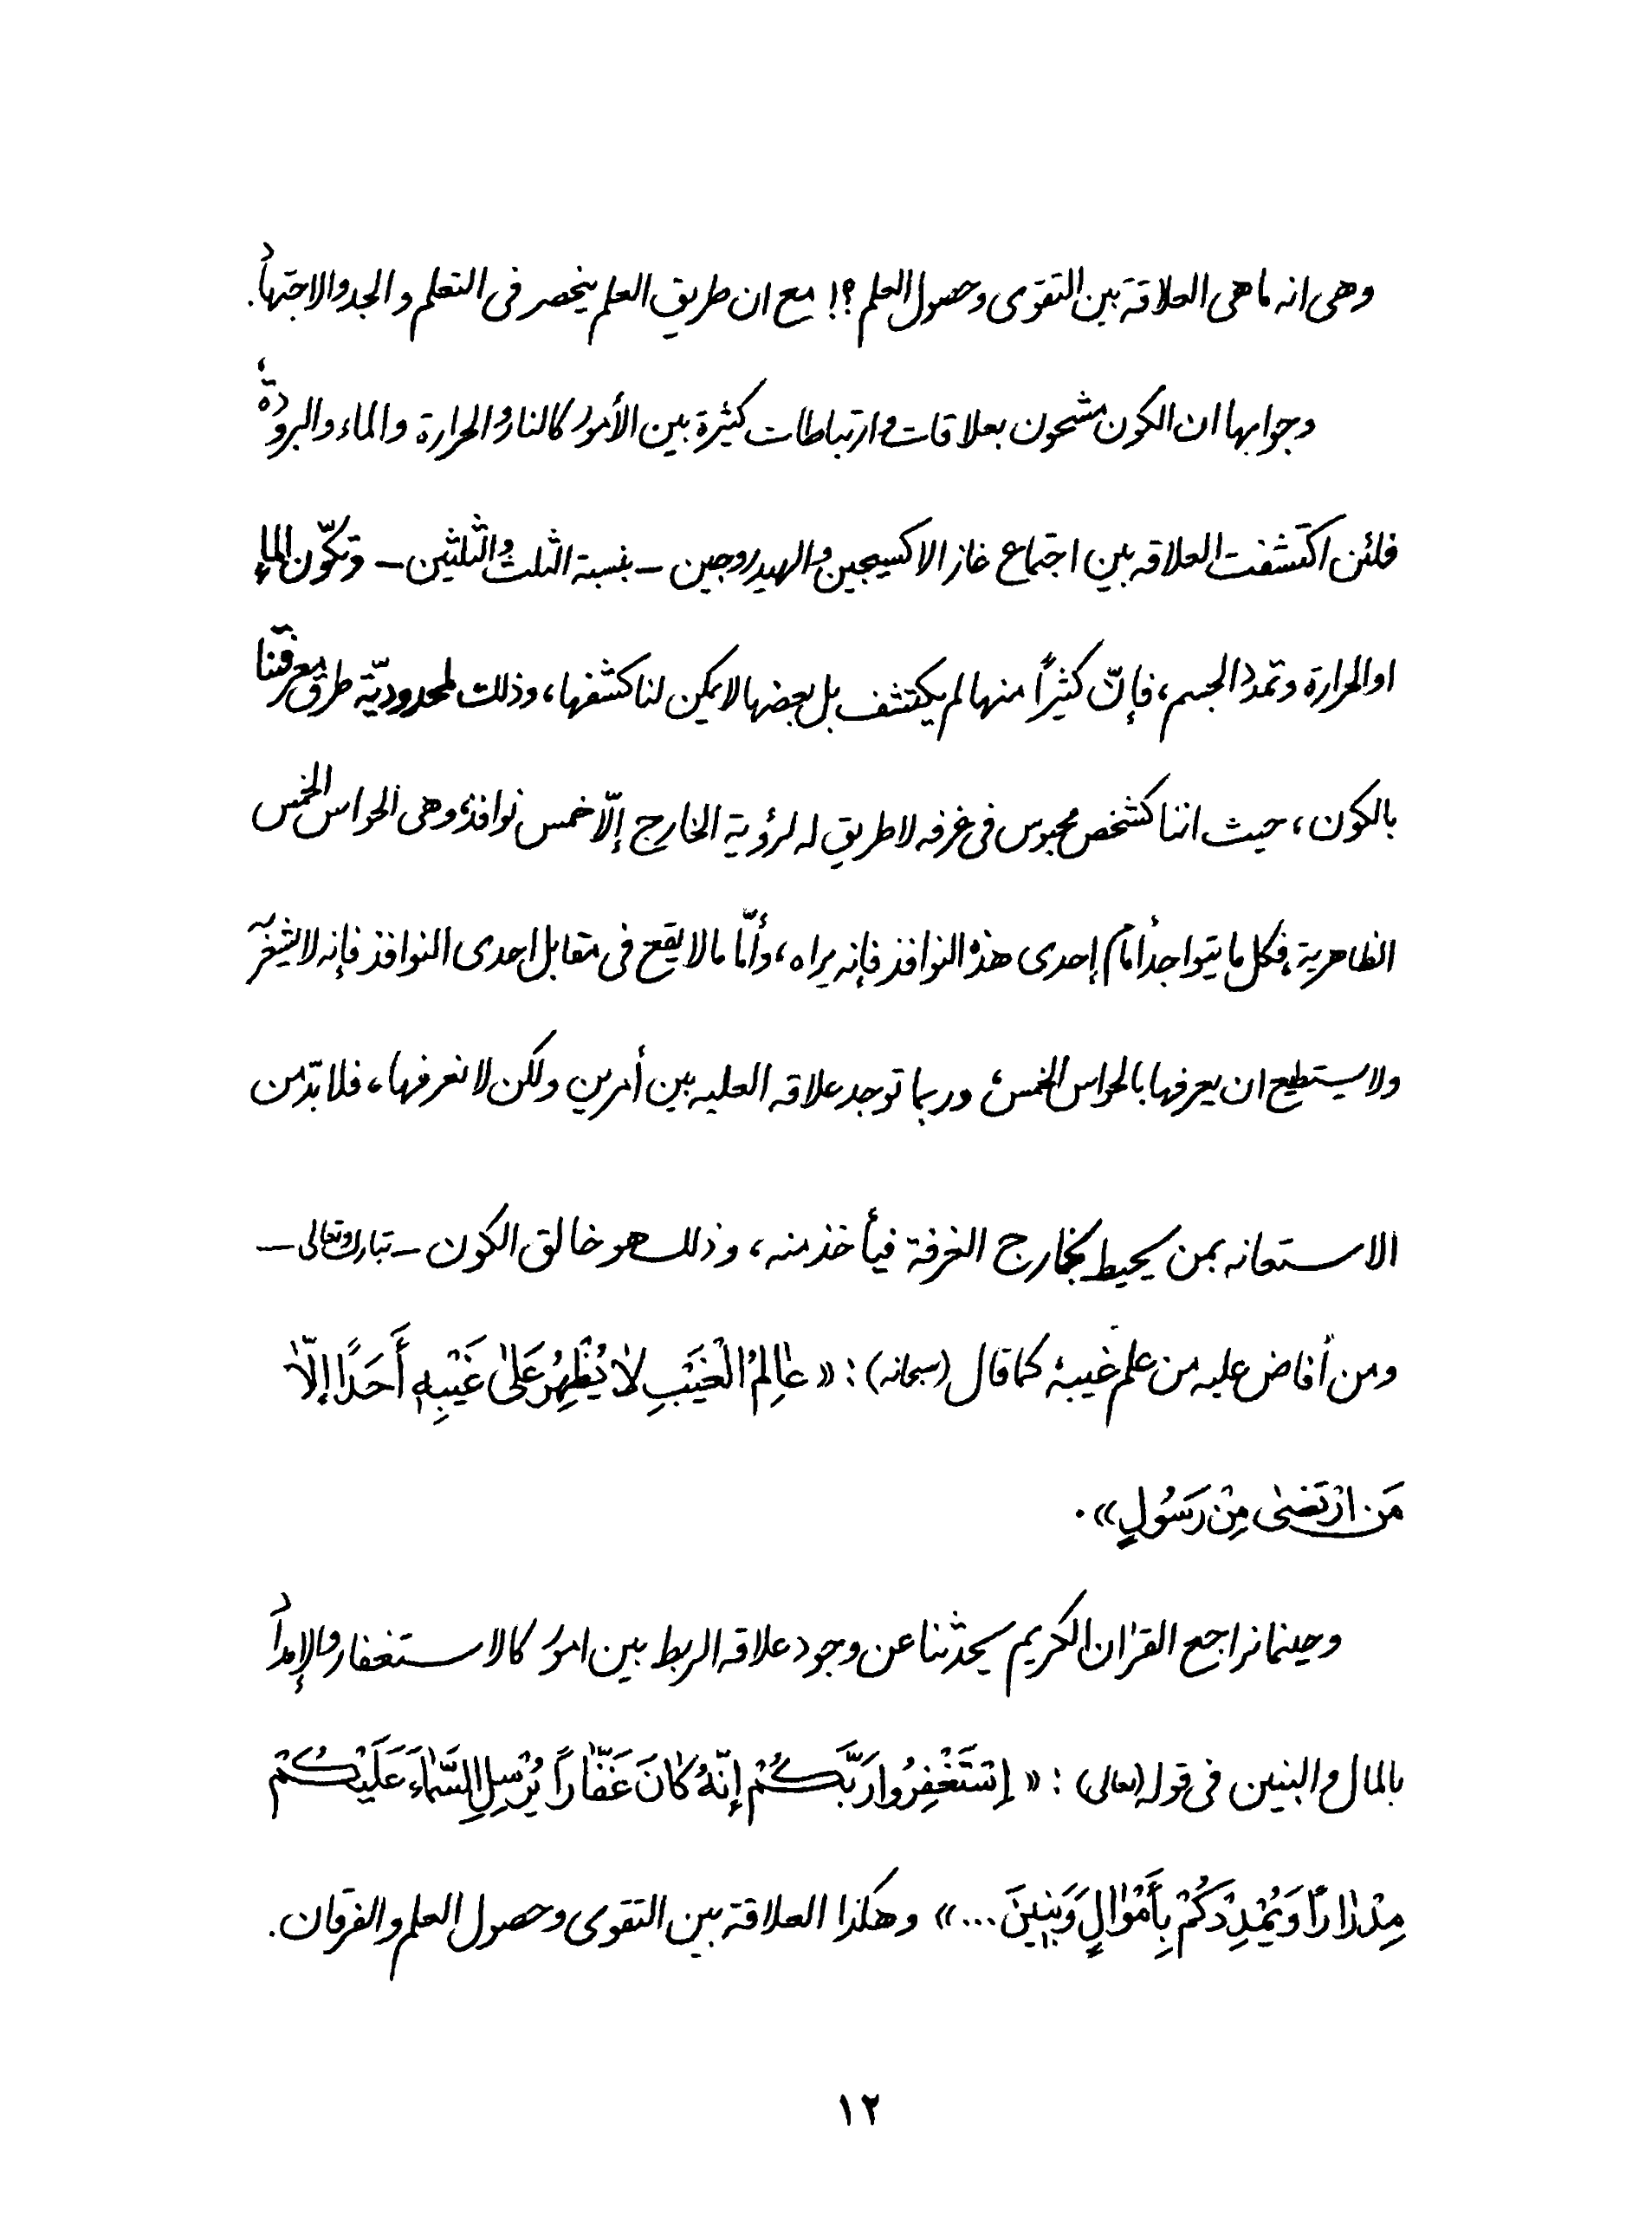 وهى انه ما هى العلاقة بين التقوى وحصول العلم ؟! مع ان طريق العلم ينحصر فى التعلم و الجد والاجتهاد.
وجوابها ان الكون مشحون بعلاقات وارتباطات كثيرة بين الأمور كالنار والحرارة والماء والبرودة،
فلئن اكتشفت العلاقه بين اجتماع غاز الاكسيجين والهيدروجين – بنسبة الثلث والثلثين – وتكوّن الماء
او الحرارة وتمدد الجسم، فإنّ كثيراً منها لم يكتشف بل بعضها لا يمكن لنا كشفها، وذلك لمحدوديّة طرق معرفتنا
بالكون، حيث اننا كشخص محبوس فى غرفه لا طريق له لرؤية الخارج إلّا خمس نوافذ، وهى الحواس الخمس
الظاهرية، فكل ما يتواجد أمام إحدى هذه النوافذ فإنه يراه، وأمّا ما لا يقع فى مقابل احدى النوافذ فإنه لا يشعر به
ولا يستطيع ان يعرفها بالحواس الخمس، وربما توجد علاقه العليه بين أمرين ولكن لا نعرفها، فلا بدّ من
الاستعانه بمن يحيط بخارج الغرفة فيأخذ منه، وذلك هو خالق الكون – تبارك وتعالى –
ومن أفاض عليه من علم غيبه كما قال (سبحانه) : « عٰالِمُ الْغَيْبِ لاٰ يُظْهِرُ عَلىٰ غَيْبِهِ أَحَدًا إلّاٰ
مَنِ ارْتَضىٰ مِنْ رَسُولٍ».
وحينما نراجع القرٰان الكريم يحدّثنا عن وجود علاقه الربط بين امور كالاستغفار والإمداد
بالمال والبنين فى قوله (تعالى) : « إِسْتَغْفِرُوا رَبَّكُمْ إِنَّهُ كٰانَ غَفّٰاراً يُرْسِلِ السَّمٰاءَ عَلَيْكُمْ
مِدْرٰاراً وَيُمْدِدْكُمْ بِأَمْوٰالٍ وَبَنِينَ ...» وهكذا العلاقة بين التقوى وحصول العلم والفرقان.
١٢